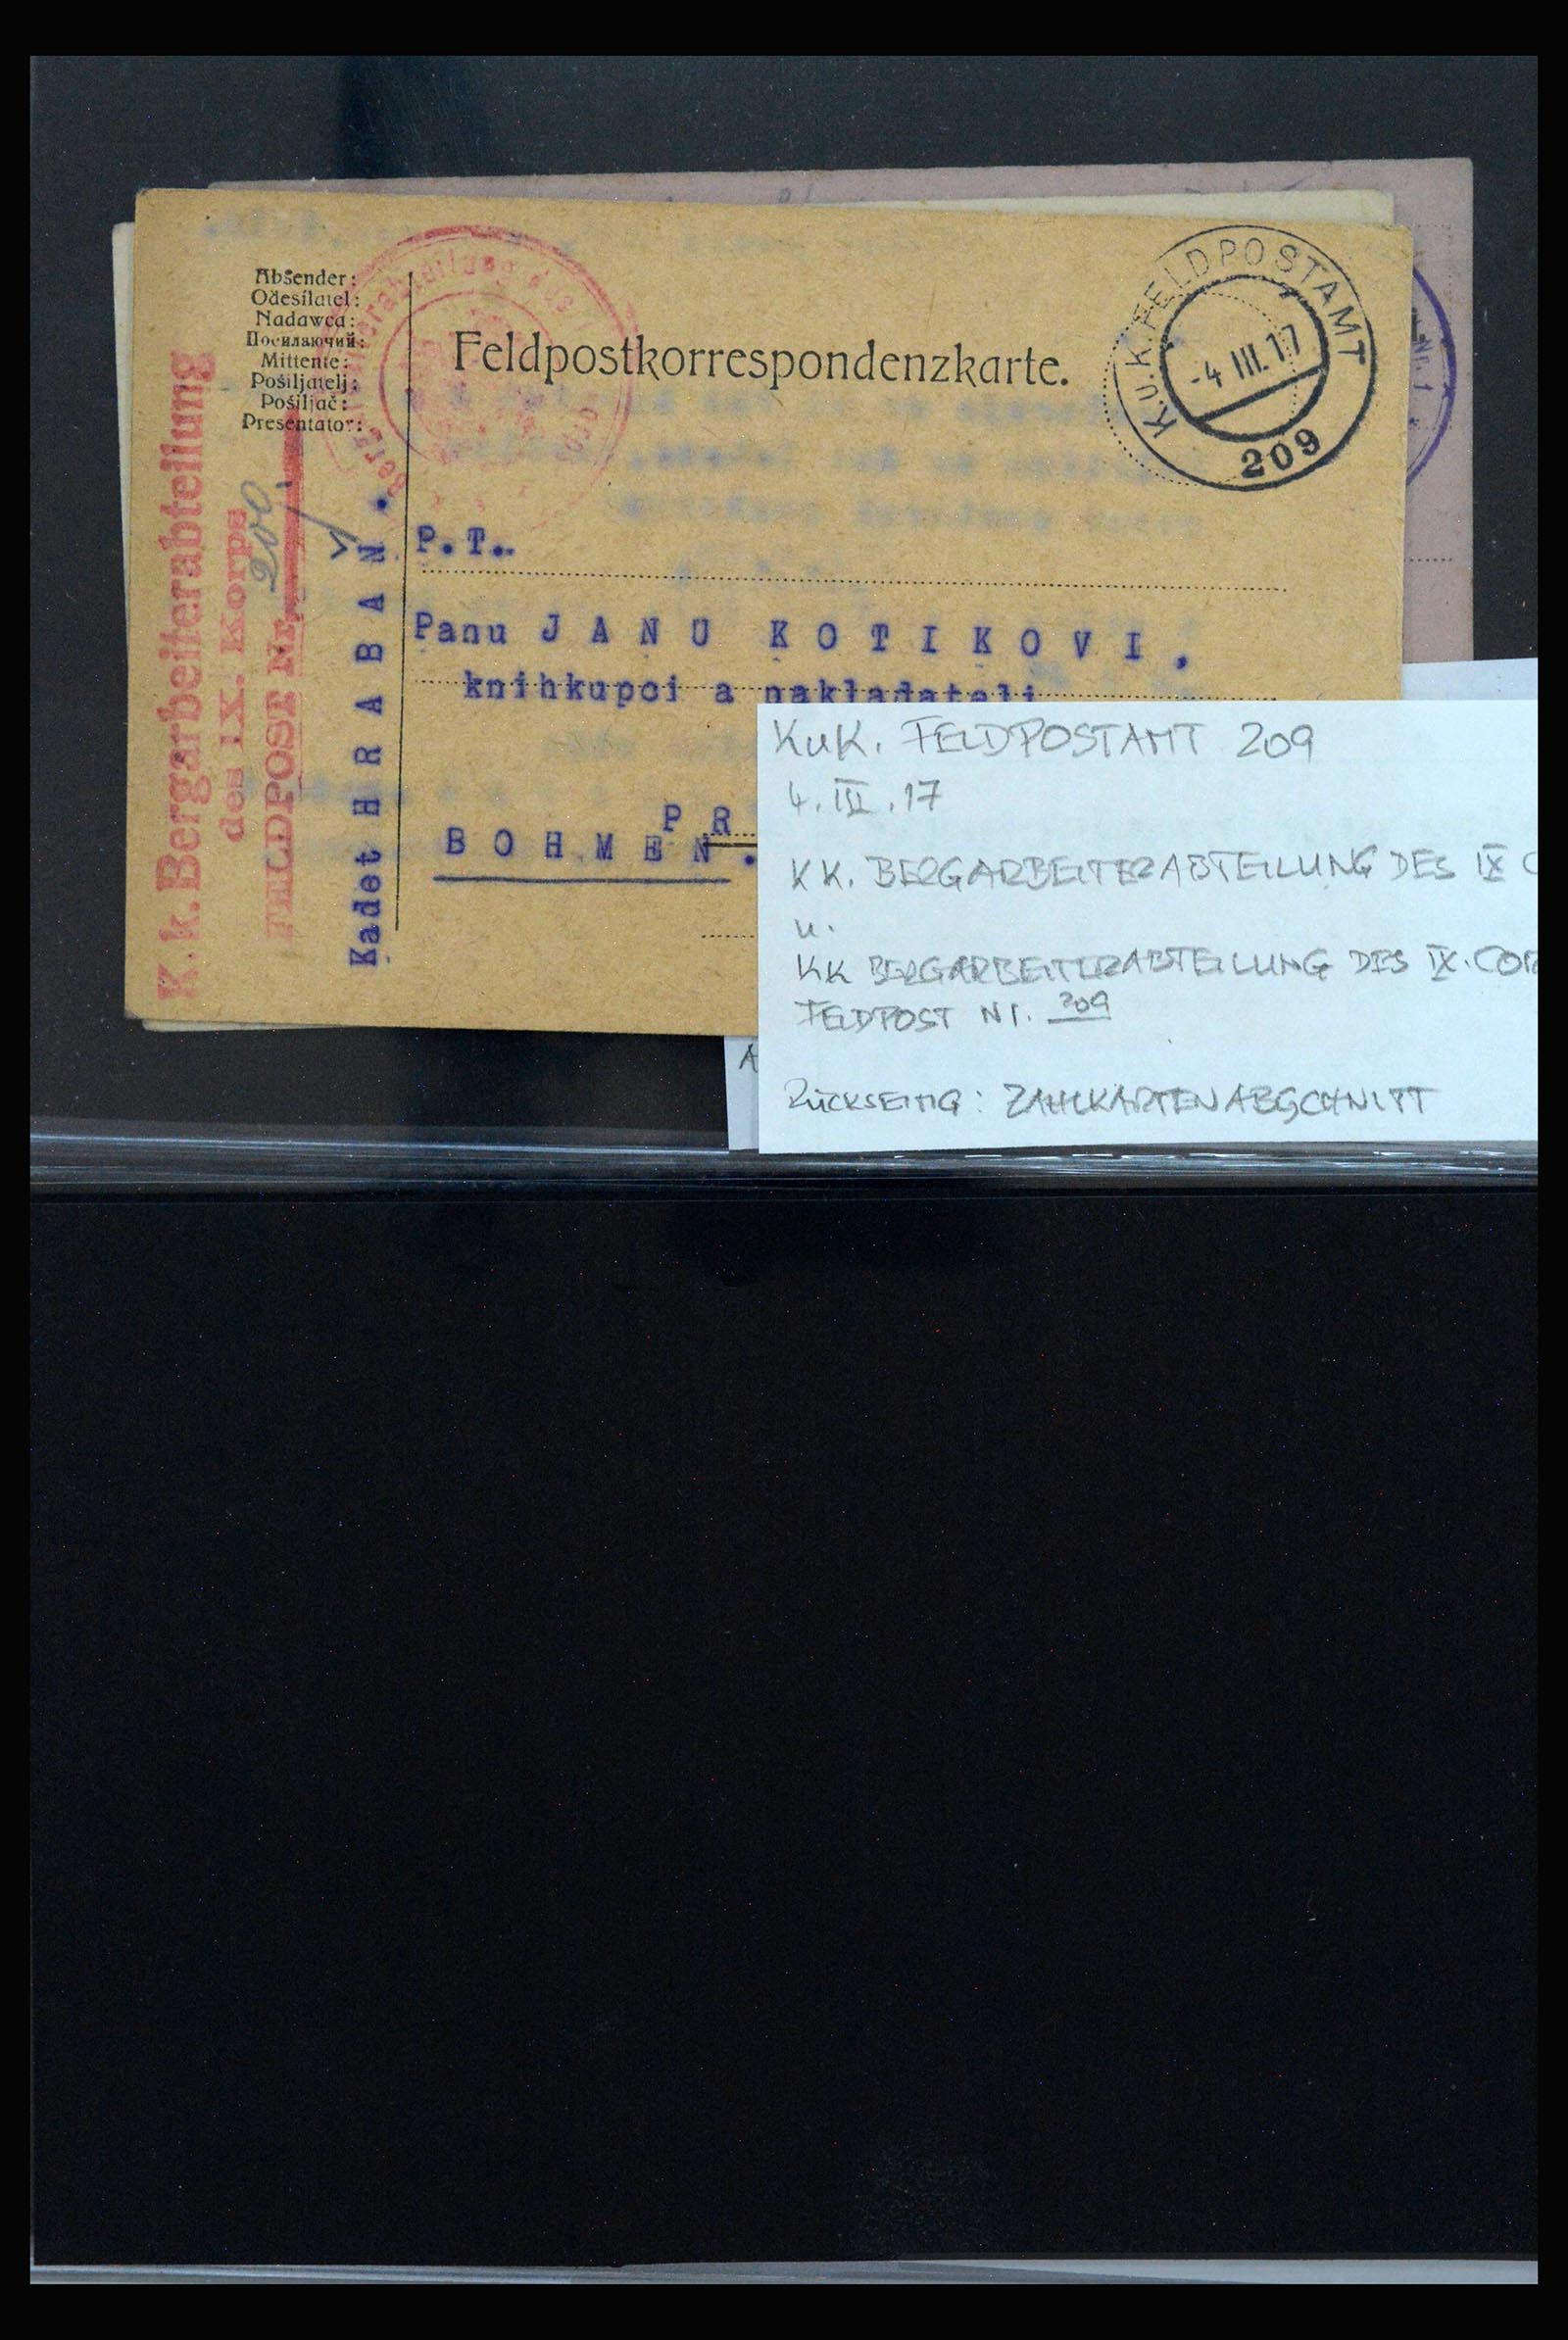 Absender:
Odesílatel:
Nadawca:
Посилаючий:
Mittente:
Pošiljatelj:
Pošiljač:
Presentator:
Feldpostkorrespondenzkarte.
K.u.K. FELDPOSTAMT
-4 III. 17
209
K. k. Bergarbeiterabteilung
des IX. Korps
FELDPOST Nr.
Kadet H R A B A N .
P.T.
Panu J A N U K O T I K O V I .
knihkupci a nakladateli
P R
B O H M E N .
Nr. 1
KuK. FELDPOSTAMT 209
4. III. 17
KK. BERGARBEITERABTEILUNG DES IX C
u.
KK BERGARBEITERABTEILUNG DES IX. COR
FELDPOST Nr. 209
RÜCKSEITIG: ZAHLKARTENABSCHNITT
A